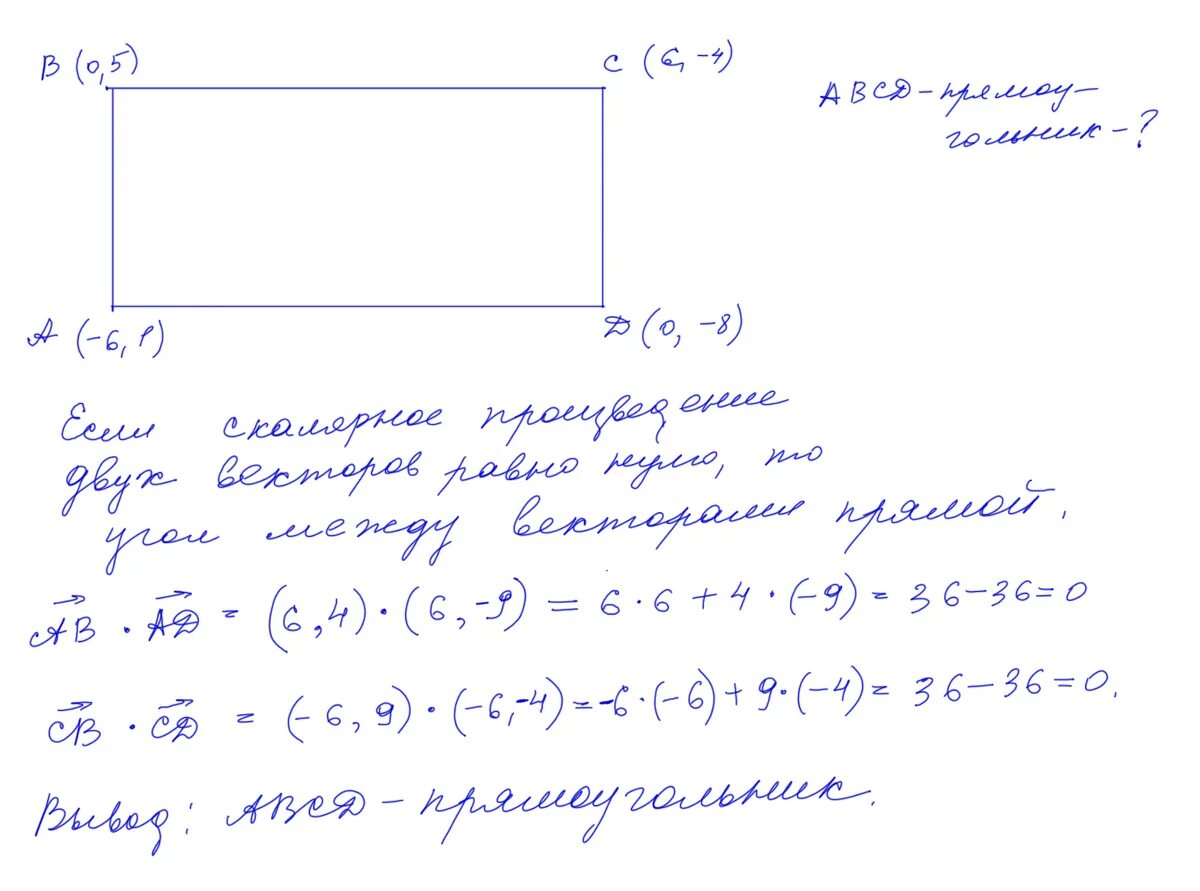 B (0,5)
C (6, -4)
ABCD - прямоу-
гольник - ?
A (-6, 1)
D (0, -8)
Если скалярное произведение
двух векторов равно нулю, то
угол между векторами прямой.
AB · AD = (6,4) · (6, -9) = 6 · 6 + 4 · (-9) = 36 - 36 = 0
CB · CD = (-6, 9) · (-6, -4) = -6 · (-6) + 9 · (-4) = 36 - 36 = 0.
Вывод: ABCD - прямоугольник.